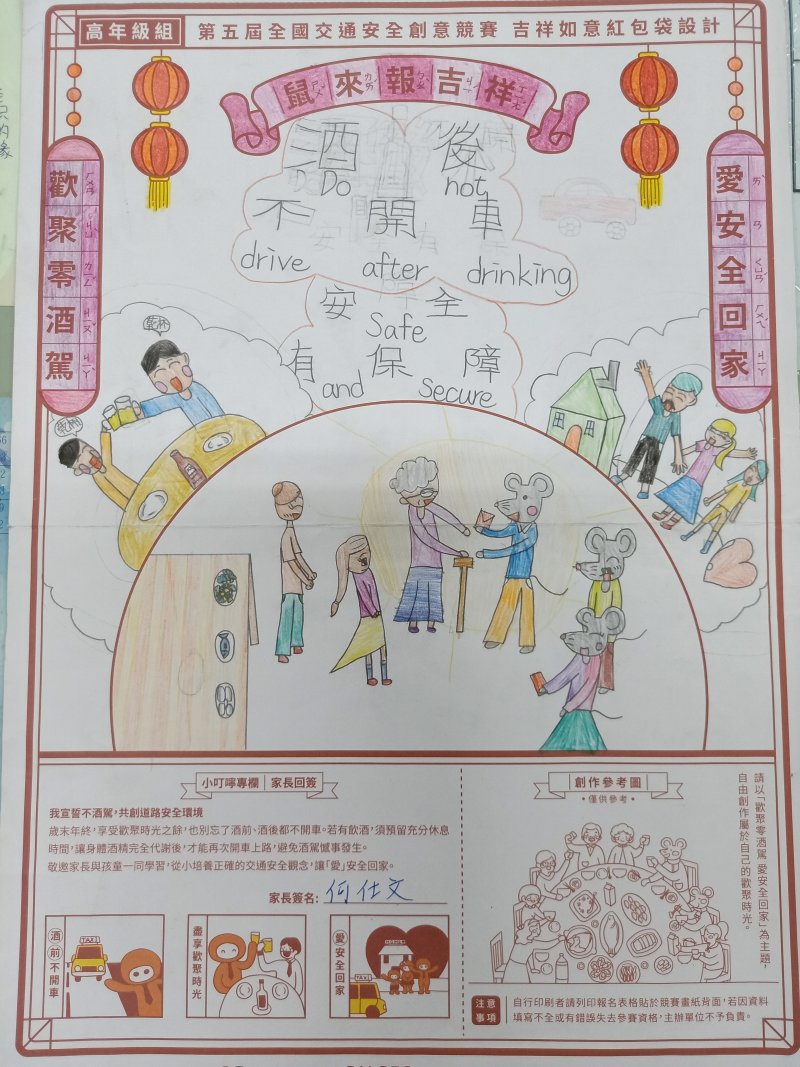 高年級組 第五屆全國交通安全創意競賽 吉祥如意紅包袋設計
鼠來報吉祥
歡聚零酒駕
愛安全回家
酒後
Do Do not
不開車
drive after drinking
安全
Safe
有保障
and secure
乾杯
乾杯
小叮嚀專欄 家長回簽
我宣誓不酒駕,共創道路安全環境
歲末年終,享受歡聚時光之餘,也別忘了酒前、酒後都不開車。若有飲酒,須預留充分休息
時間,讓身體酒精完全代謝後,才能再次開車上路,避免酒駕憾事發生。
敬邀家長與孩童一同學習,從小培養正確的交通安全觀念,讓「愛」安全回家。
家長簽名: 何仕文
酒前不開車
TAXI
盡享歡聚時光
愛安全回家
HOME
TAXI
創作參考圖
•僅供參考•
請以「歡聚零酒駕 愛安全回家」為主題,
自由創作屬於自己的歡聚時光。
注意事項
自行印刷者請列印報名表格貼於競賽畫紙背面,若因資料
填寫不全或有錯誤失去參賽資格,主辦單位不予負責。